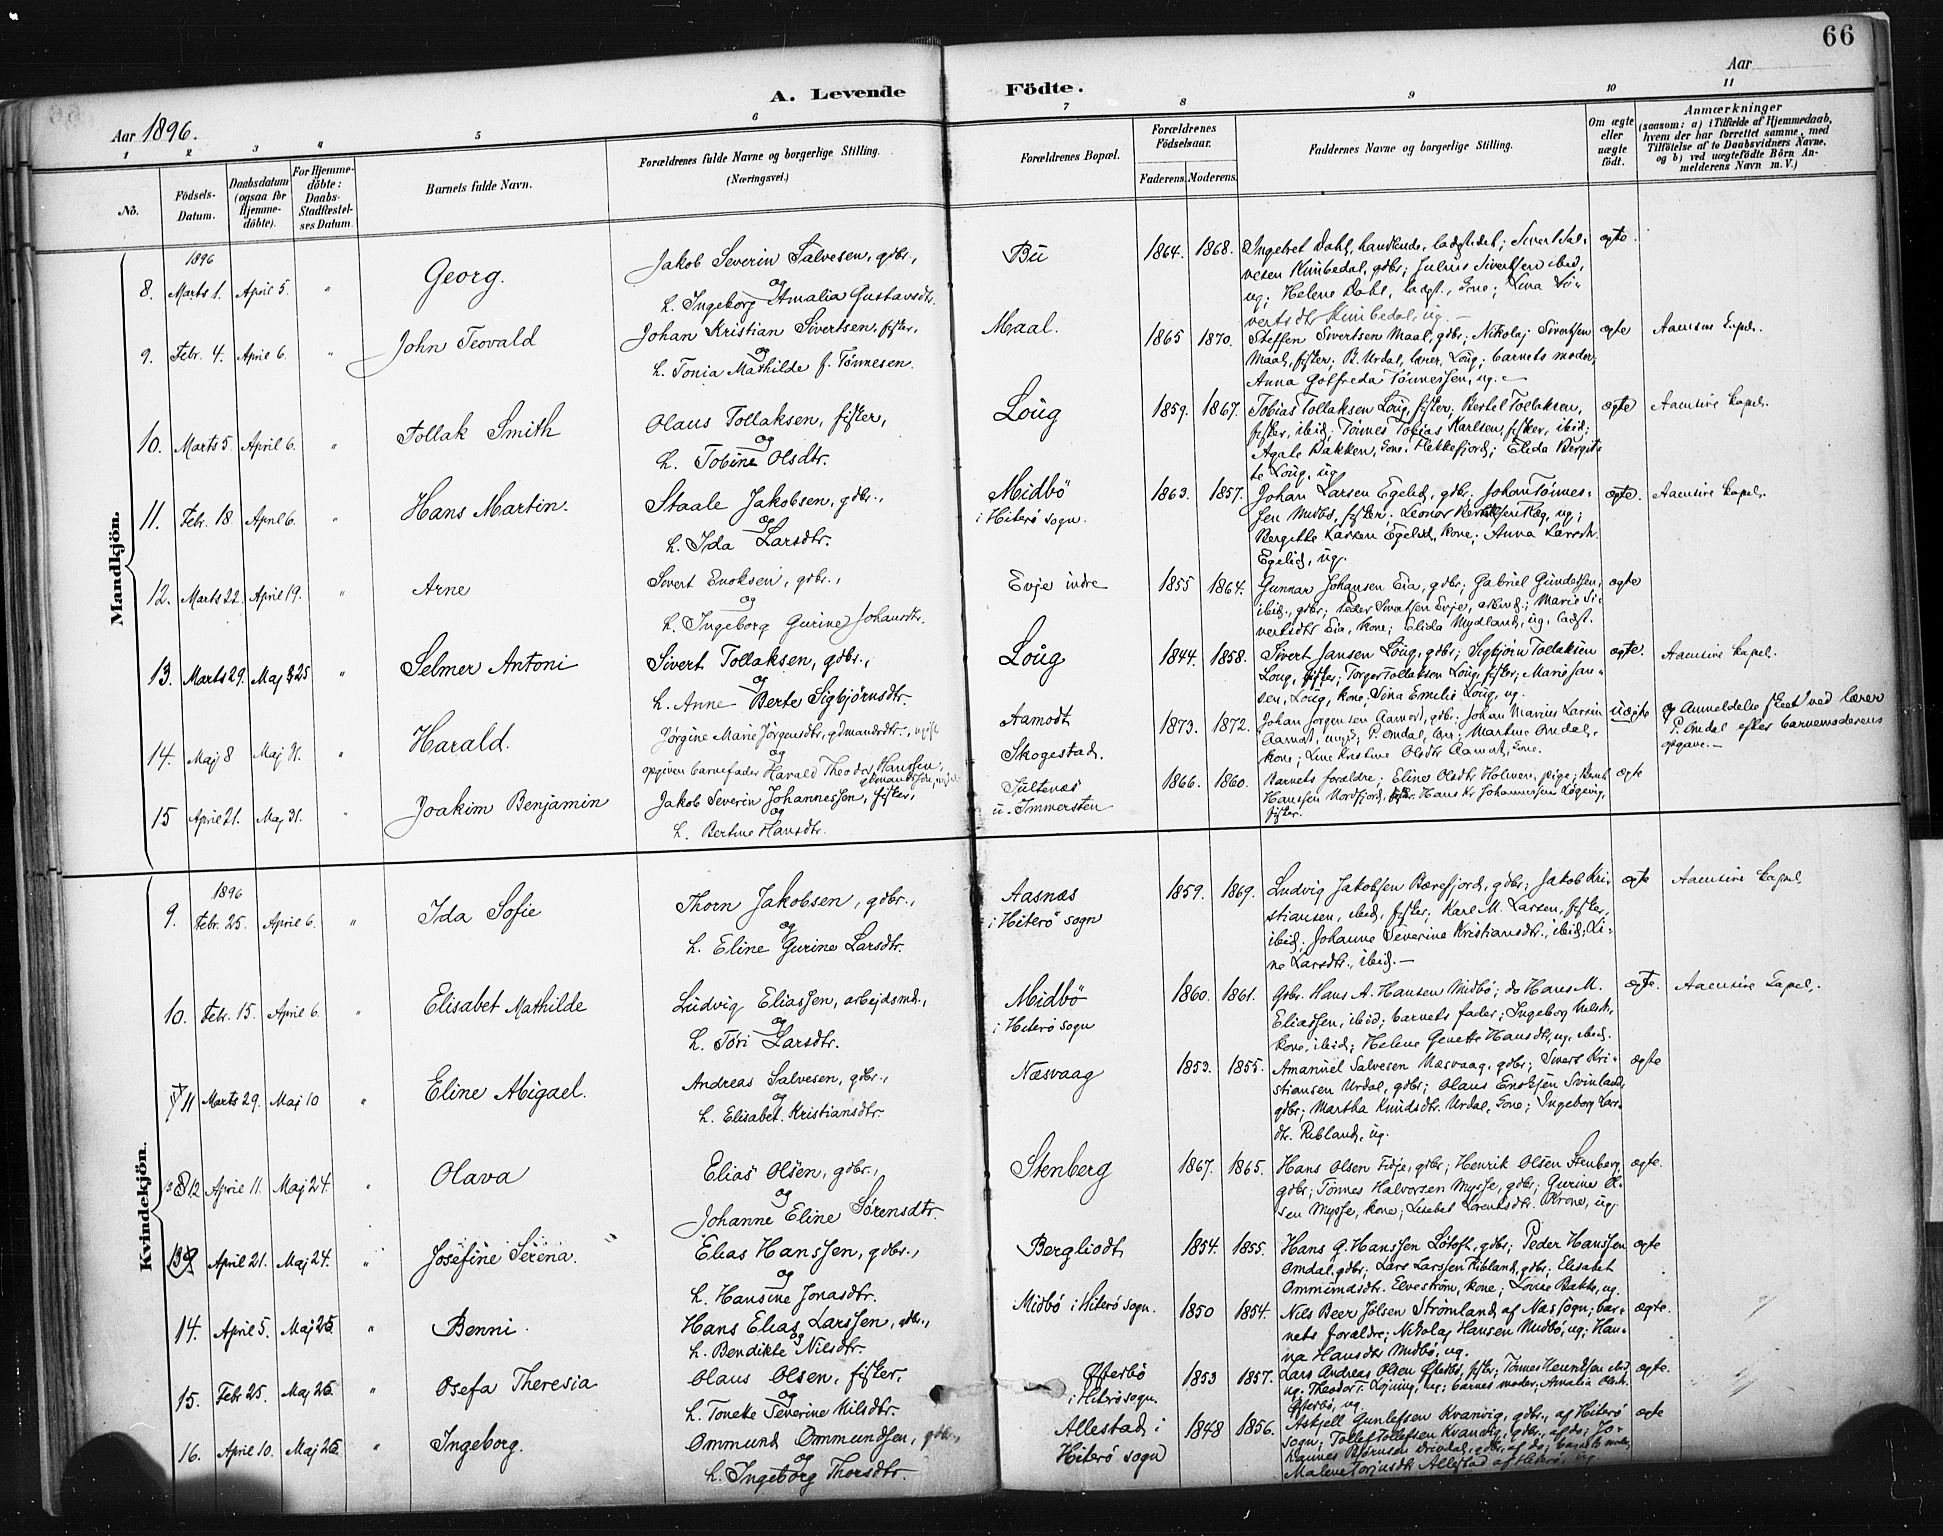 66
A. Levende Födte.
Aar 1896.
Aar
1 2 3 4 5 6 7 8 9 10 11
No.
Födsels-Datum.
Daabsdatum (ogsaa för Hjemme-döbte).
For Hjemme-döbte: Daabs-Stadfæstel-ses Datum.
Barnets fulde Navn.
Forældrenes fulde Navne og borgerlige Stilling.
(Næringsvei.)
Forældrenes Bopæl.
Forældrenes Födselsaar.
Faderens. Moderens.
Faddernes Navne og borgerlige Stilling.
Om ægte eller uægte födt.
Anmærkninger
(saasom: a) i Tilfælde af Hjemmedaab,
hvem der har forrettet samme, med
Tilföielse af to Daabsvidners Navne,
og b) ved uægtefödte Börn An-
melderens Navn m. V.)
Mandkjön.
1896
8. Marts 1. April 5. " Georg. Jakob Severin Salvesen, gdbr., og h. Ingeborg Amalia Gustavsdtr. Bu 1864. 1868. Ingebret Dahl, handlende, ladested; Sivert Sal-
vesen Kumbedal, gdbr; Julius Sivertsen ibid,
ug; Helene Dahl, ladest., kone; Lina Si-
vertsdtr Kumbedal, ug. — ægte.
9. Febr. 4. April 6. " John Teovald Johan Kristian Sivertsen, fisker, og h. Tonia Mathilde f. Tønnesen. Maal. 1865 1870. Steffen Sivertsen Maal, gdbr; Nikolaj Sivertsen
Maal, fisker; B. Urdal, lærer, Loug; barnets moder;
Anna Golfreda Tønnessen, ug. — ægte Aaensire kapel.
10. Marts 5. April 6. " Tollak Smith Olaus Tollaksen, fisker, og h. Tobine Olsdtr. Loug 1859. 1867. Tobias Tollaksen Loug, fisker; Bertel Tollaksen,
fisker, ibid; Tønnes Tobias Karlsen, fisker, ibid;
Agate Bakken, kone, Flekkefjord; Elida Bergit-
te Loug, ug. ægte Aaensire kapel.
11. Febr. 18. April 6. " Hans Martin. Staale Jakobsen, gdbr., og h. Ida Larsdtr. Midbö i Hiterö sogn. 1863. 1857. Johan Larsen Egelid, gdbr; Johan Tönnes-
sen Midbö, fisker; Leonor
Bergitte Larsen Egelid, kone; Anna Larsdtr.
Egelid, ug. ægte. Aaensire kapel.
12. Marts 22. April 19. " Arne Sivert Enoksen, gdbr., og h. Ingeborg Gurine Johansdtr. Evje indre 1855 1864. Gunnar Johansen Eia, gdbr; Gabriel Gundersen,
ibid., gdbr; Peder Sivertsen Evje, arbmd.; Marie Si-
vertsdtr Eia, kone; Elida Mydland, ug, ladst. ægte
13. Marts 29. Maj 25 " Selmer Antoni Sivert Tollaksen, gdbr., og h. Anne Berte Sigbjörnsdtr. Loug 1844. 1858. Sivert Jansen Loug, gdbr; Sigbjörn Tollaksen
Loug, fisker; Torger Tollaksen Loug, fisker; Marie Jan-
sen, Loug, kone; Sina Emelie Loug, ug. ægte. Aaensire kapel.
14. Maj 8 Maj 31. " Harald. Jørgine Marie Jörgensdtr, gdmandsdtr., ugift og opgiven barnefader Harald Theodor Hanssen, gdmandssøn, ugift Aamodt Skogestad. 1873. 1872. Johan Jørgensen Aamodt, gdbr; Johan Marius Larsen
Aamodt, ungk; P. Omdal, lær; Martine Omdal,
kone; Line Kristine Olsdtr Aamodt, kone. uægte Anmeldelse skeet ved lærer
P. Omdal efter barnemoderens
opgave. —
15 April 21. Maj 31. Joakim Benjamin Jakob Severin Johannessen, fisker, og h. Bertine Hansdtr. Sultenæs u. Immersten 1866. 1860. Barnets forældre; Eline Olsdtr Holmen, pige; Bernt
Hanssen Nordfjord, fisker. Hans Kr. Johannessen Løgning,
fisker. ægte
Kvindekjön.
1896
9. Febr. 25. April 6. " Ida Sofie Thorn Jakobsen, gdbr., og h. Eline Gurine Larsdtr. Aasnæs i Hiterö sogn 1859. 1869. Ludvig Jakobsen Bærefjord, gdbr; Jakob Kri-
stiansen, ibid, fisker; Karl M. Larsen, fisker,
ibid; Johanne Severine Kristiansdtr., ibid; Li-
ne Larsdtr., ibid. — ægte Aaensire kapel.
10. Febr. 15. April 6. " Elisabet Mathilde Ludvig Eliassen, arbejdsmd., og h. Tori Larsdtr. Midbö i Hiterö sogn 1860. 1861. Gdbr. Hans A. Hansen Midbö; do Hans M.
Eliassen, ibid; barnets fader; Ingeborg Nilsdtr.
kone, ibid; Helene Genette Hansdtr, ug. ibid. ægte. Aaensire kapel.
11 Marts 29. Maj 10 " Eline Abigael. Andreas Salvesen, gdbr., og h. Elisabet Kristiansdtr. Næsvaag 1853. 1855. Amanuel Salvesen Næsvaag, gdbr; Sivert Kri-
stiansen Urdal, gdbr; Olaus Enoksen Svinland,
gdbr; Martha Knudsdtr. Urdal, kone; Ingeborg Lars-
dtr. Ribland, ug. ægte
12 April 11. Maj 24. " Olava Elias Olsen, gdbr., og Johanne Eline Sørensdtr. Stenberg 1867. 1865. Hans Olsen Fidje, gdbr; Henrik Olsen Stenberg
gdbr; Tönnes Halvorsen Mysse, gdbr; Gurine Ol-
sen Mysse, kone; Lisebet Lorentsdtr. Krone, ug. ægte.
13 April 21. Maj 24. " Josefine Serena. Elias Hanssen, gdbr., og h. Hansine Jonasdtr. Bergliodt 1854. 1855. Hans G. Hanssen Løtoft, gdbr; Peder Hanssen
Omdal, gdbr; Lars Larssen Ribland, gdbr; Elisabet
Ommundsdtr. Elvestrøm, kone; Lovise Bakke, ug. ægte
14. April 5. Maj 25. " Benni. Hans Elias Larssen, gdbr., og h. Bendikte Nilsdtr. Midbö i Hiterö sogn. 1850 1854. Nils Beer Jolsen Strømland af Næs sogn; bar-
nets forældre; Nikolaj Hansen Midbö, ug; Han-
na Hansdtr Midbö, ug. ægte.
15. Febr 25. Maj 25. " Osefa Theresia Olaus Olsen, fisker. og h. Tonette Severine Nilsdtr. Østerbö i Hiterö sogn. 1853 1857. Lars Andreas Olsen Østerbö, fisker; Tönnes Henriksen ibid
ug; Theodor T. Løgning, ug; barnets moder; Amalia Olsdtr.
Østerbö, ug. ægte.
16. April 10. Maj 25. " Ingeborg. Ommund Ommundsen, gdbr., og h. Ingeborg Thorsdtr. Allestad i Hiterö sogn 1848 1856. Askjell Gunlefsen Kvanvig, gdbr., af Hiterö
sogn; Tollef Tollefsen Kvanvig, gdbr., af do; Jo-
hannes Bjørnsen Drivdal, gdbr, af do; barnets moder,
Malene Torjusdtr Allestad af Hiterö, ug. ægte